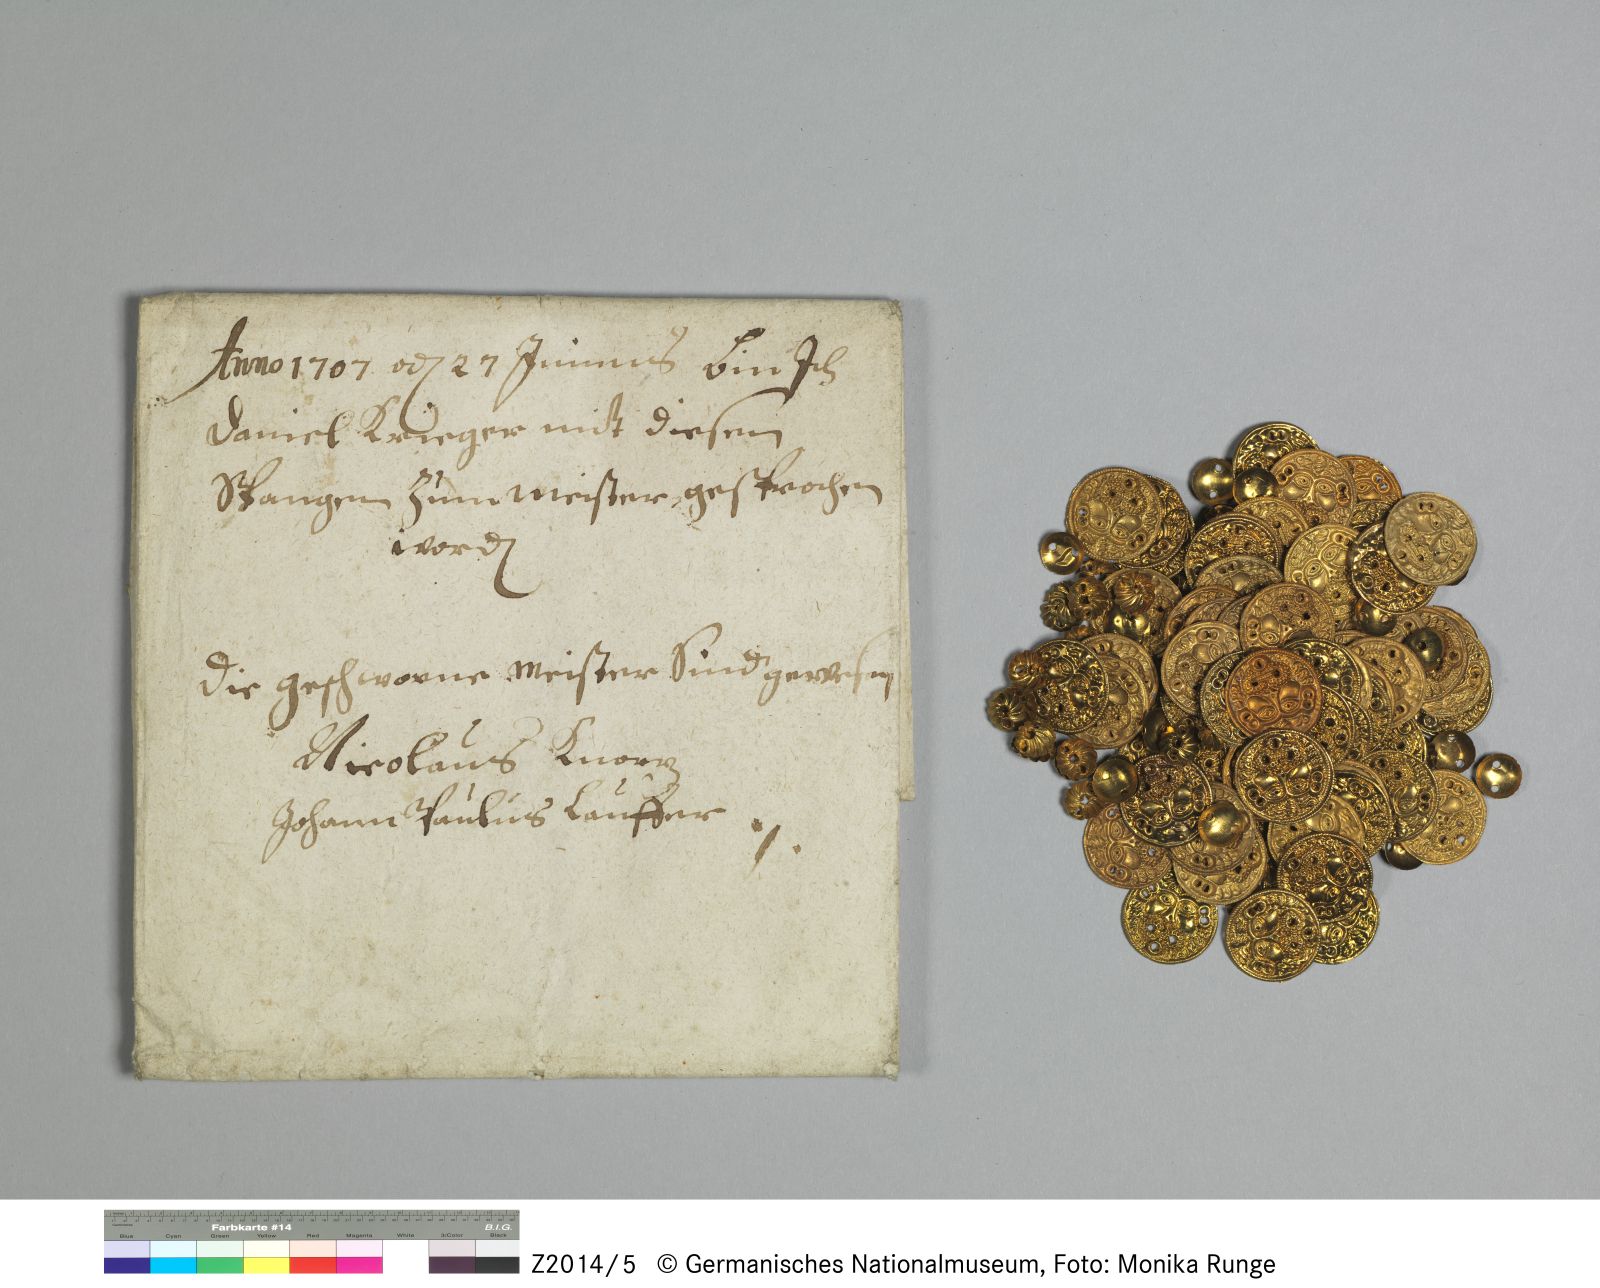 Anno 1707 od 27 Junius bin Ich
Daniel Krieger mit diesem
Spangen zum meister gesprochen
word
Die geschworne meister sind gewesen
Nicolaus Knorz
Johann Paulus Lauffer
Farbkarte #14
B.I.G.
Blue Cyan Green Yellow Red Magenta White 3/Color Black
Z2014/5 © Germanisches Nationalmuseum, Foto: Monika Runge